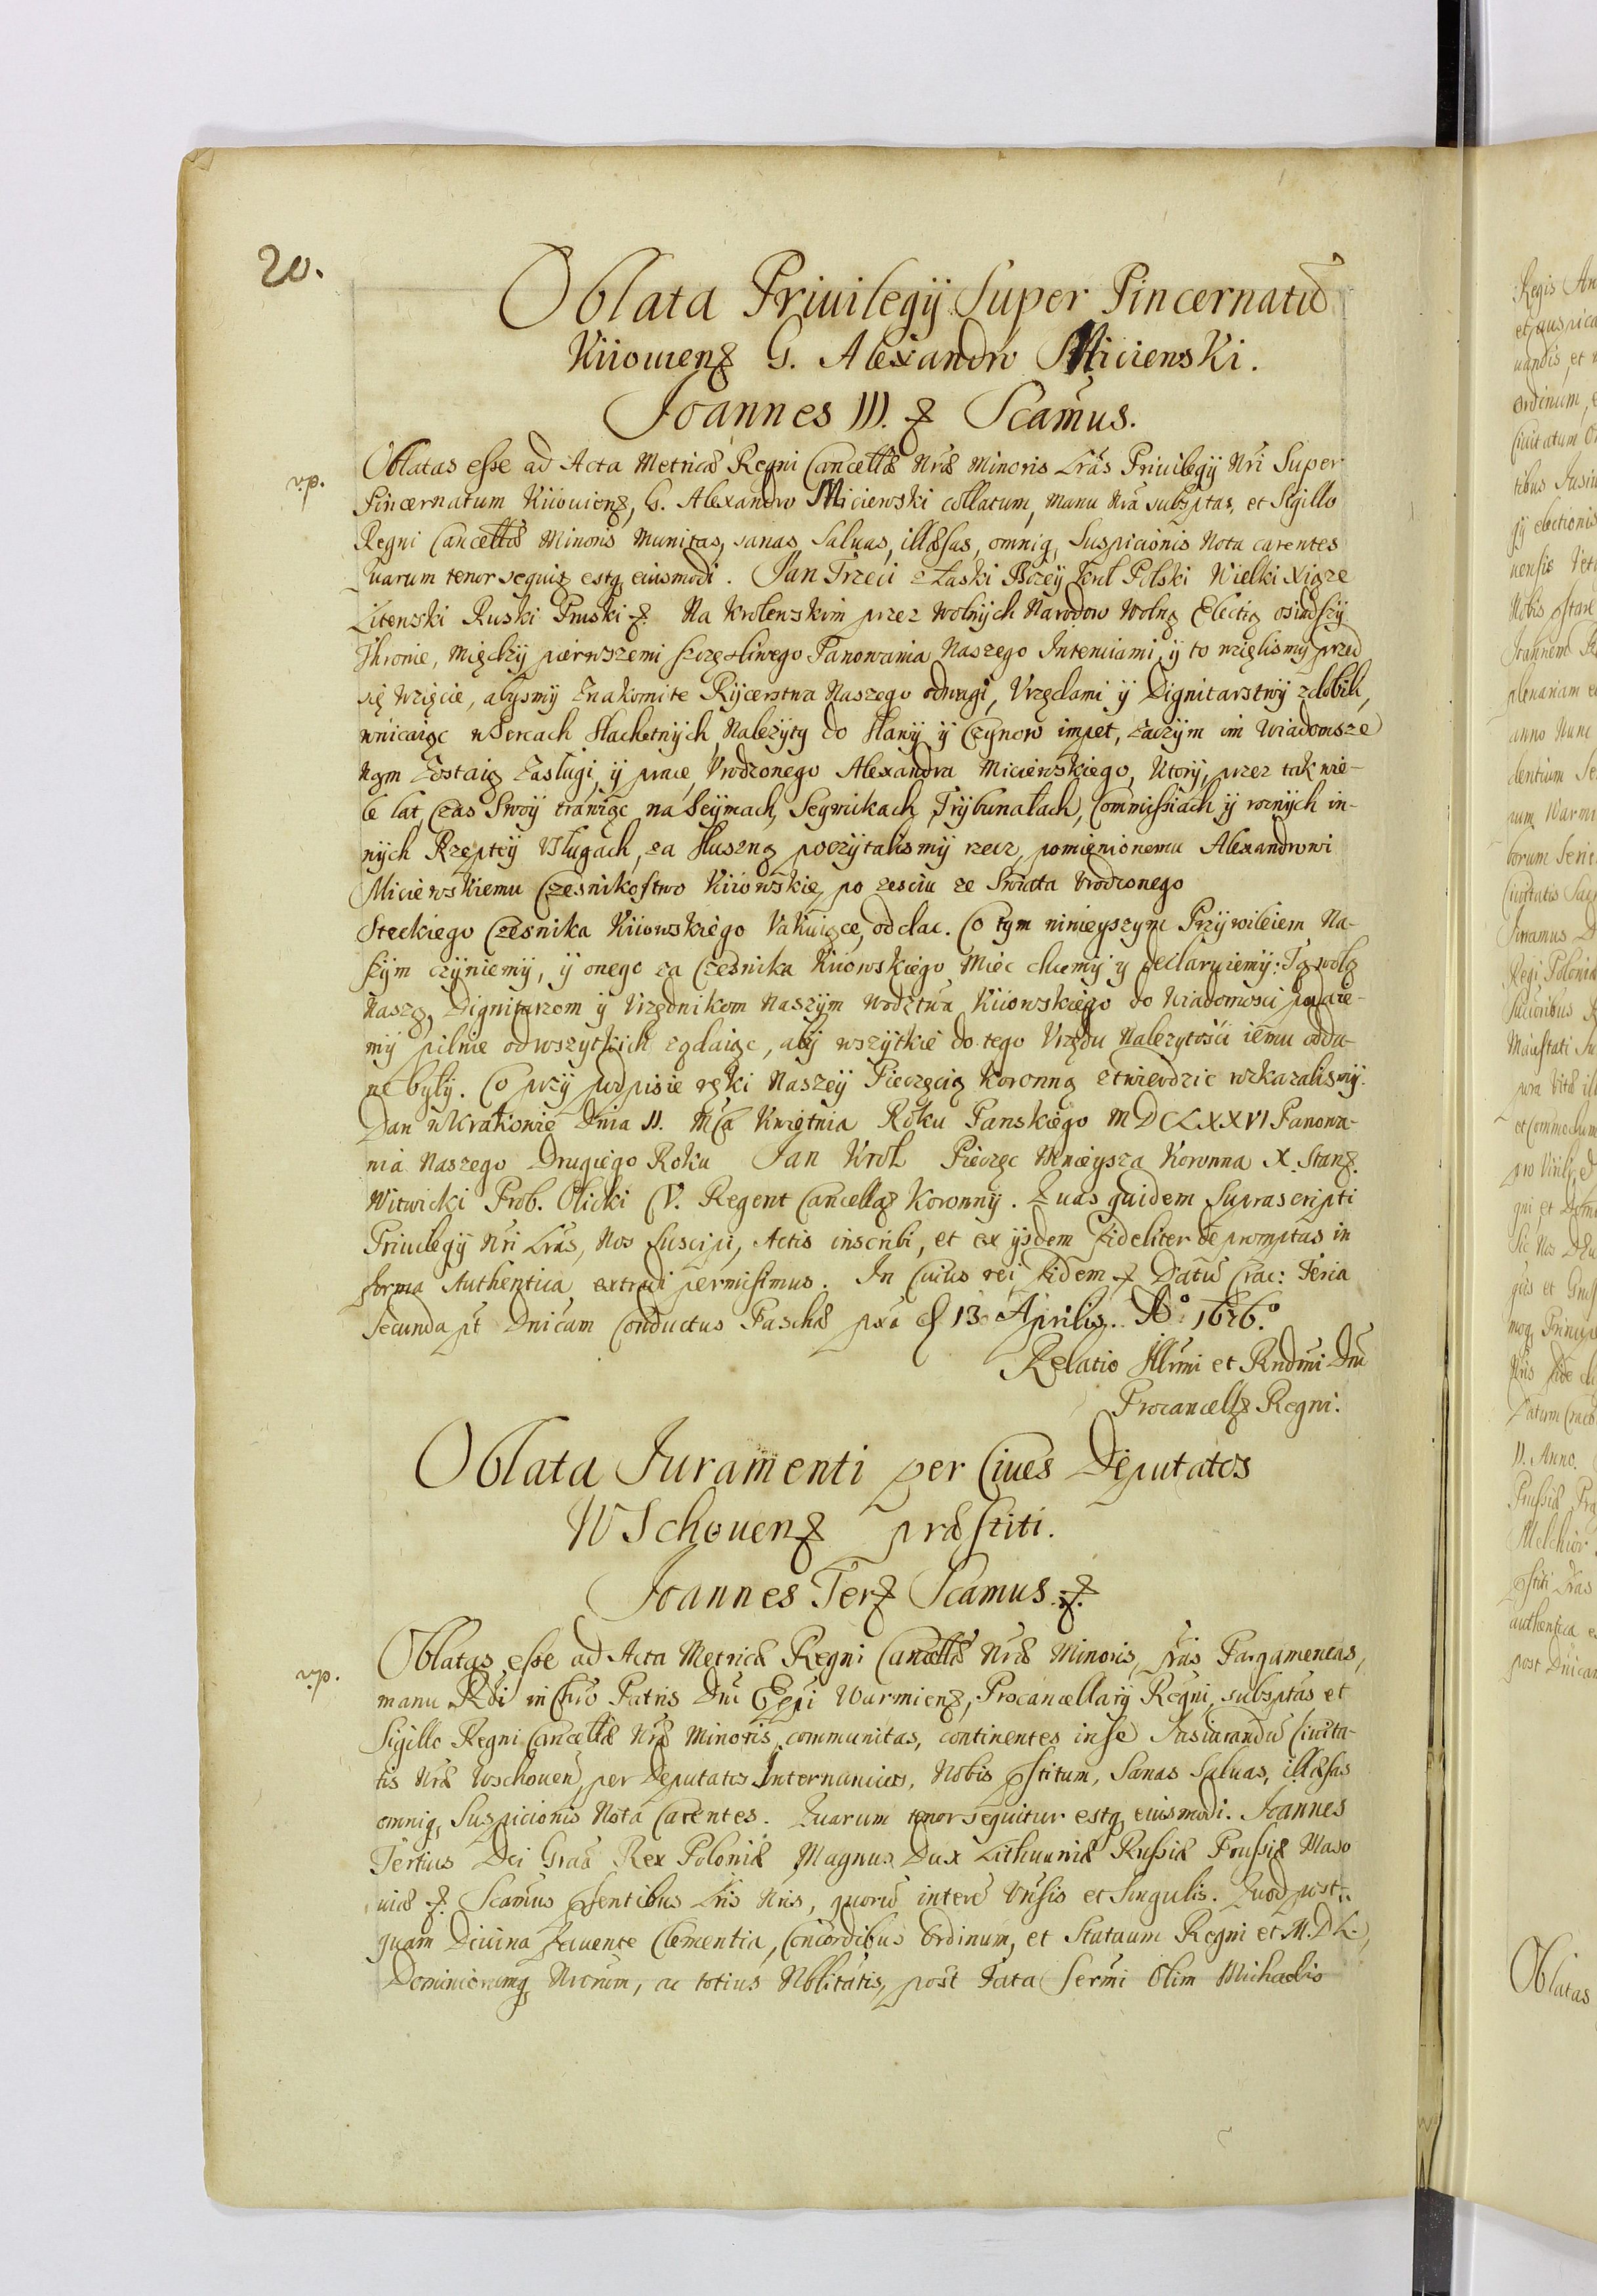 20.
Oblata Priuilegij Super Pincernatū
Kiiouienʒ G. Alexandro Miciewski.
Joannes III. ꝛ Scamus.
vp. Oblatas esse ad Acta Metricæ Regni Cancellæ Nræ Minoris Lras Priuilegij Nri Super
Pincernatum Kiiouienʒ, G. Alexandro Miciewski collatum, manu Nra subsptas, et Sigillo
Regni Cancellæ Minoris munitas, sanas, saluas, illæsas, omniq, Suspicionis Nota carentes
Quarum tenor sequiʒ estq eiusmodi. Jan Trzeci z Łaski Bożey Krol Polski Wielki Xiąze
Litewski Ruski Pruski ꝛ. Na Krolewskim przez wolnych Narodow wolną Electią osiadszy
Thronie, między pierwszemi szczęsliwego Panowania Naszego Intenciami, y to wzięlismy przed
się wzięcie, abysmy znakomite Rycerstwa Naszego odwagi, Vrzędami y Dignitarstwy zdobili,
wnicaiąc w Sercach slachetnych, Należyty do sławy y Czynow impet, zaczym im wiadomsze
Nąm zostaią zasługi, y prace, Vrodzonego Alexandra Miciewskiego, Ktory, przez tak wie-
le lat, czas Swoy trawiąc na Seymach, Seymikach, Trybunałach, Commissiach y roznych in-
nych Rzeptey Vsługach, za słuszną poczytalismy rzecz, pomienionemu Alexandrowi
Miciewskiemu Czesnikostwo Kiiowskie, po zesciu ze Swiata Vrodzonego
Steckiego Czesnika Kiiowskiego Vakuiące, oddac. Co tym ninieyszym Przywileiem Na-
szym czyniemy, y onego za Czesnika Kiiowskiego Miec chcemy y declaruiemy: Tą wolą
Naszą, Dignitarzom y Vrzędnikom Naszym Wodztwa Kiiowskiego do wiadomosci podaie-
my pilnie od wszytkich ządaiąc, aby wszytkie do tego Vrzędu Należytosci iemu odda-
ne były. Co przy podpisie ręki Naszey Pieczęcią Koronną ztwierdzic rozkazalismy.
Dan w Krakowie Dnia 11. Mca Kwietnia Roku Panskiego MDCLXXVI Panowa-
nia Naszego Drugiego Roku Jan Krol Pieczęc Mnieysza Koronna X. Stanʒ.
Witwicki Prob. Olicki CV. Regent Cancellaʒ Koronny. Quas quidem Suprascripti
Priuilegij Nri Lras, Nos suscipi, Actis inscribi, et ex ijsdem fideliter depromptas in
forma Authentica extradi permisimus. In Cuius rei fidem ꝛ Datū Crac: Feria
Secunda pt Dnicam Conductus Paschæ pxa d 13 Aprilis. Ao: 1676.o
Relatio Illrmi et Rndmi Dni
Procancellʒ Regni.
Oblata Juramenti per Ciues Deputatos
WSchouenʒ præstiti.
Joannes Terʒ Scamus. ꝛ.
vp. Oblatas esse ad Acta Metricæ Regni Cancellæ Nræ Minoris, Lras Pargameneas,
manu Rdi in Chro Patris Dni Eppi Warmienʒ, Procancellarij Regni, subsptas et
Sigillo Regni Cancellæ Nræ Minoris communitas, continentes in se Jusiurandū Ciuita-
tis Nræ Wschouen, per Deputatos Internuncios, Nobis pstitum, Sanas Saluas, illæsas
omniq, Suspicionis Nota Carentes. Quarum tenor sequitur estq, eiusmodi. Joannes
Tertius Dei Gra Rex Poloniæ Magnus Dux Lithuaniæ Russiæ Prussiæ Maso
uiæ ꝛ. Scamus psentibus Lris Nris, quorū interē Vnsis et Singulis. Quod post-
quam Diuina fauente Clementia, Concordibus Ordinum, et Statuum Regni et M.D.L.,
Dominiorumq, Nrorum, ac totius Nblitatis, post Fata Sermi Olim Michaelis